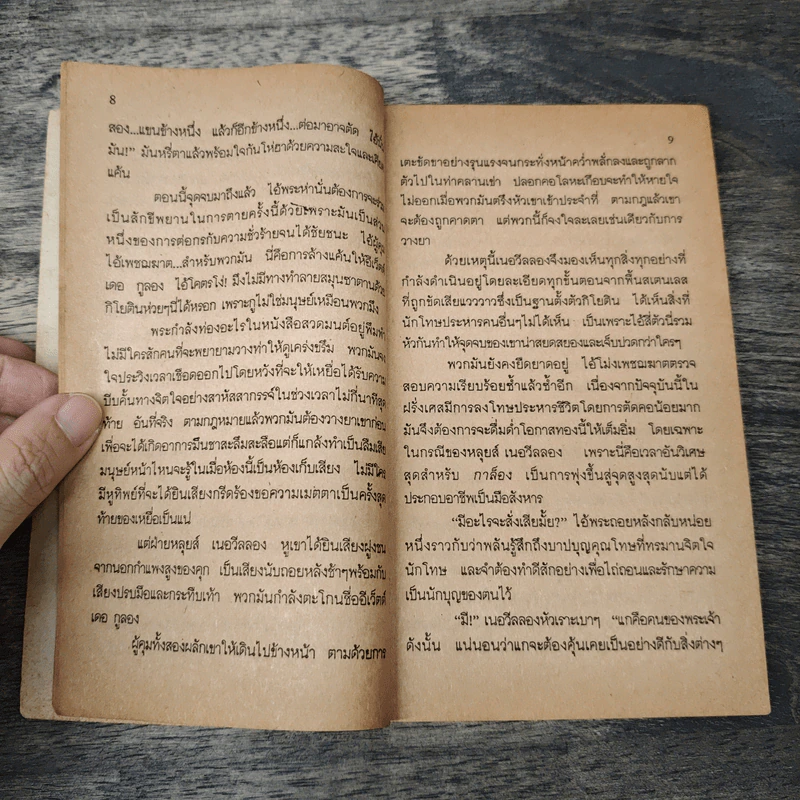 8
สอง...แขนข้างหนึ่ง แล้วก็อีกข้างหนึ่ง...ต่อมาอาจตัด
มัน!” มันหรี่ตาแล้วพร้อมใจกันโห่ฮาด้วยความสะใจและเคียด
แค้น
ตอนนี้จุดจบมาถึงแล้ว ไอ้พระห่านั่นต้องการจะช่วย
เป็นสักขีพยานในการตายครั้งนี้ด้วยเพราะมันเป็นส่วน
หนึ่งของการต่อกรกับความชั่วร้ายจนได้ชัยชนะ ไอ้ผู้คุม
ไอ้เพชฌฆาต...สำหรับพวกมัน นี่คือการล้างแค้นให้อีเว็ตต์
เดอ กูลอง ไอ้โคตรโง่! มึงไม่มีทางทำลายสมุนซาตานด้วย
กิโยตินห่วยๆนี่ได้หรอก เพราะกูไม่ใช่มนุษย์เหมือนพวกมึง
พระกำลังท่องอะไรในหนังสือสวดมนต์อยู่พึมพำ
ไม่มีใครสักคนที่จะพยายามวางท่าให้ดูเคร่งขรึม พวกมันจง
ใจประวิงเวลาเชือดออกไปโดยหวังที่จะให้เหยื่อได้รับความ
บีบคั้นทางจิตใจอย่างสาหัสสากรรจ์ในช่วงเวลาไม่กี่นาทีสุด
ท้าย อันที่จริง ตามกฎหมายแล้วพวกมันต้องวางยาเขาก่อน
เพื่อจะได้เกิดอาการมึนชาสะลึมสะลือแต่ก็แกล้งทำเป็นลืมเสีย
มนุษย์หน้าไหนจะรู้ในเมื่อห้องนี้เป็นห้องเก็บเสียง ไม่มีใคร
มีหูทิพย์ที่จะได้ยินเสียงกรีดร้องขอความเมตตาเป็นครั้งสุด
ท้ายของเหยื่อเป็นแน่
แต่ฝ่ายหลุยส์ เนอวีลลอง หูเขาได้ยินเสียงฝูงชน
จากนอกกำแพงสูงของคุก เป็นเสียงนับถอยหลังช้าๆพร้อมกับ
เสียงปรบมือและกระทืบเท้า พวกมันกำลังตะโกนชื่ออีเว็ตต์
เดอ กูลอง
ผู้คุมทั้งสองผลักเขาให้เดินไปข้างหน้า ตามด้วยการ
9
เตะขัดขาอย่างรุนแรงจนกระทั่งหน้าคว่ำพลั่กลงและถูกลาก
ตัวไปในท่าคลานเข่า ปลอกคอโลหะเกือบจะทำให้หายใจ
ไม่ออกเมื่อพวกมันตรึงหัวเขาเข้าประจำที่ ตามกฎแล้วเขา
จะต้องถูกคาดตา แต่พวกนี้ก็จงใจละเลยเช่นเดียวกับการ
วางยา
ด้วยเหตุนี้เนอวีลลองจึงมองเห็นทุกสิ่งทุกอย่างที่
กำลังดำเนินอยู่โดยละเอียดทุกขั้นตอนจากพื้นสเตนเลส
ที่ถูกขัดเสียแวววาวซึ่งเป็นฐานตั้งตัวกิโยติน ได้เห็นสิ่งที่
นักโทษประหารคนอื่นๆไม่ได้เห็น เป็นเพราะไอ้สี่ตัวนี่รวม
หัวกันทำให้จุดจบของเขาน่าสยดสยองและเจ็บปวดกว่าใครๆ
พวกมันยังคงยืดยาดอยู่ ไอ้โม่งเพชฌฆาตตรวจ
สอบความเรียบร้อยซ้ำแล้วซ้ำอีก เนื่องจากปัจจุบันนี้ใน
ฝรั่งเศสมีการลงโทษประหารชีวิตโดยการตัดคอน้อยมาก
มันจึงต้องการจะดื่มด่ำโอกาสทองนี้ให้เต็มอิ่ม โดยเฉพาะ
ในกรณีของหลุยส์ เนอวีลลอง เพราะนี่คือเวลาอันวิเศษ
สุดสำหรับ กาล็อง เป็นการพุ่งขึ้นสู่จุดสูงสุดนับแต่ได้
ประกอบอาชีพเป็นมือสังหาร
“มีอะไรจะสั่งเสียมั้ย?” ไอ้พระถอยหลังกลับหน่อย
หนึ่งราวกับว่าพลันรู้สึกถึงบาปบุญคุณโทษที่ทรมานจิตใจ
นักโทษ และจำต้องทำดีสักอย่างเพื่อไถ่ถอนและรักษาความ
เป็นนักบุญของตนไว้
“มี!” เนอวีลลองหัวเราะเบาๆ “แกคือคนของพระเจ้า
ดังนั้น แน่นอนว่าแกจะต้องคุ้นเคยเป็นอย่างดีกับสิ่งต่างๆ